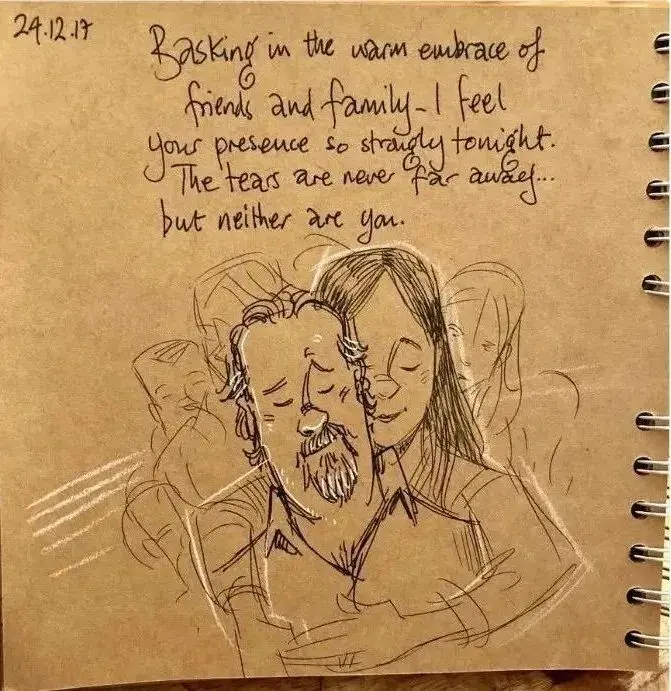 24.12.17
Basking in the warm embrace of
friends and family - I feel
your presence so strongly tonight.
The tears are never far away...
but neither are you.